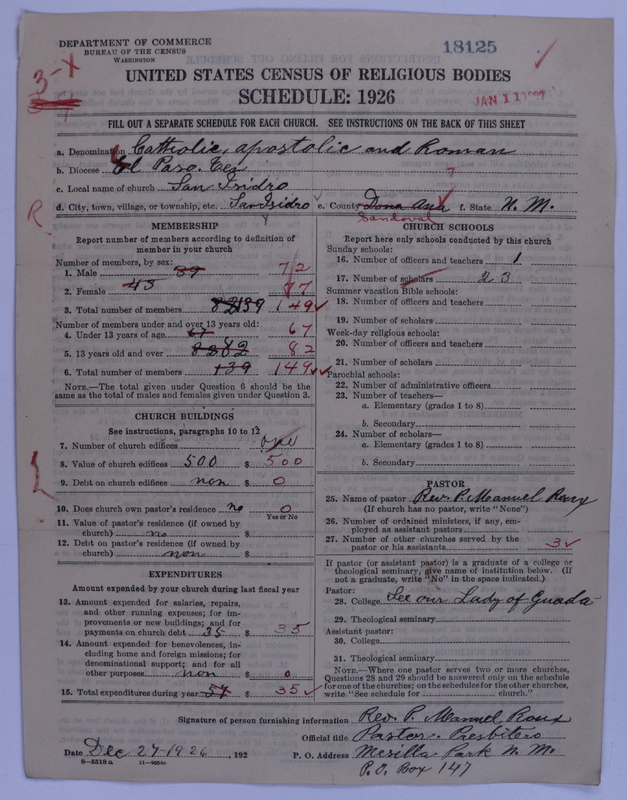 DEPARTMENT OF COMMERCE
BUREAU OF THE CENSUS
WASHINGTON
18125
3-X
UNITED STATES CENSUS OF RELIGIOUS BODIES
SCHEDULE: 1926
JAN 11 1927
FILL OUT A SEPARATE SCHEDULE FOR EACH CHURCH. SEE INSTRUCTIONS ON THE BACK OF THIS SHEET
a. Denomination Catholic, apostolic and Roman
b. Diocese El Paso. Tex
c. Local name of church San Isidro
d. City, town, village, or township, etc. San Isidro e. County Dona Ana f. State N. M.
R
Sandoval
MEMBERSHIP
Report number of members according to definition of
member in your church
Number of members, by sex:
1. Male 39 72
2. Female 43 77
3. Total number of members 82 139 149
Number of members under and over 13 years old:
4. Under 13 years of age 67
5. 13 years old and over 82 82
6. Total number of members 139 149
NOTE.—The total given under Question 6 should be the
same as the total of males and females given under Question 3.
CHURCH BUILDINGS
See instructions, paragraphs 10 to 12
7. Number of church edifices one
8. Value of church edifices 500 $ 500
9. Debt on church edifices non $ 0
10. Does church own pastor's residence no 0
Yes or No
11. Value of pastor's residence (if owned by
church) no $
12. Debt on pastor's residence (if owned by
church) non $
EXPENDITURES
Amount expended by your church during last fiscal year
13. Amount expended for salaries, repairs,
and other running expenses; for im-
provements or new buildings; and for
payments on church debt 35 $ 35
14. Amount expended for benevolences, in-
cluding home and foreign missions; for
denominational support; and for all
other purposes non $ 0
15. Total expenditures during year $ 35
CHURCH SCHOOLS
Report here only schools conducted by this church
Sunday schools:
16. Number of officers and teachers 1
17. Number of scholars 23
Summer vacation Bible schools:
18. Number of officers and teachers
19. Number of scholars
Week-day religious schools:
20. Number of officers and teachers
21. Number of scholars
Parochial schools:
22. Number of administrative officers
23. Number of teachers—
a. Elementary (grades 1 to 8)
b. Secondary
24. Number of scholars—
a. Elementary (grades 1 to 8)
b. Secondary
PASTOR
25. Name of pastor Rev. P. Manuel Roux
(If church has no pastor, write "None")
26. Number of ordained ministers, if any, em-
ployed as assistant pastors
27. Number of other churches served by the
pastor or his assistants 3
If pastor (or assistant pastor) is a graduate of a college or
theological seminary, give name of institution below. (If
not a graduate, write "No" in the space indicated.)
Pastor:
28. College See our Lady of Guada-
29. Theological seminary
Assistant pastor:
30. College
31. Theological seminary
NOTE.—Where one pastor serves two or more churches,
Questions 28 and 29 should be answered only on the schedule
for one of the churches; on the schedules for the other churches,
write "See schedule for church."
Signature of person furnishing information Rev. P. Manuel Roux
Official title Pastor. Presbitero
Date Dec 27-1926, 192
P. O. Address Mesilla Park N. M.
8-5518a 11-9054
P.O. Box 147